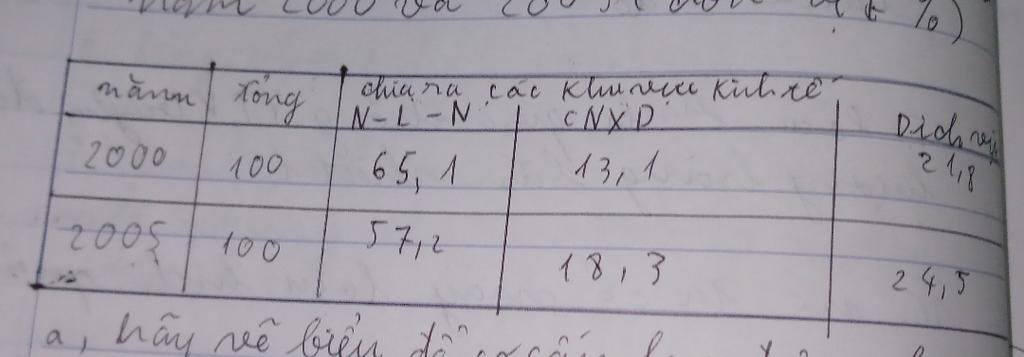 năm 2000 và 2005 ( đơn vị %)
năm tổng chia ra các khu vực kinh tế
N-L-N CNXD Dịch vụ
2000 100 65,1 13,1 21,8
2005 100 57,2 18,3 24,5
a, hãy vẽ biểu đồ cơ cấu